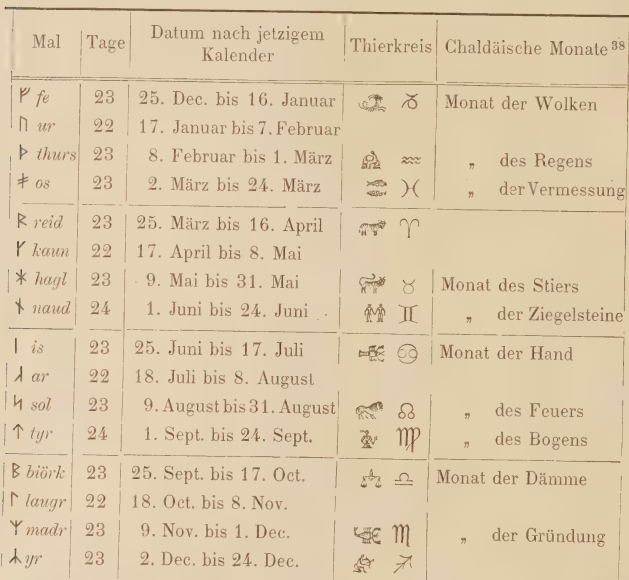 Mal Tage Datum nach jetzigem Kalender Thierkreis Chaldäische Monate 38
ᚠ fe 23 25. Dec. bis 16. Januar ♑ Monat der Wolken
ᚢ ur 22 17. Januar bis 7. Februar
ᚦ thurs 23 8. Februar bis 1. März ♒ „ des Regens
ᚬ os 23 2. März bis 24. März ♓ „ der Vermessung
ᚱ reid 23 25. März bis 16. April ♈
ᚴ kaun 22 17. April bis 8. Mai
ᚼ hagl 23 9. Mai bis 31. Mai ♉ Monat des Stiers
ᚾ naud 24 1. Juni bis 24. Juni ♊ „ der Ziegelsteine
ᛁ is 23 25. Juni bis 17. Juli ♋ Monat der Hand
ᛅ ar 22 18. Juli bis 8. August
ᛋ sol 23 9. August bis 31. August ♌ „ des Feuers
ᛏ tyr 24 1. Sept. bis 24. Sept. ♍ „ des Bogens
ᛒ biörk 23 25. Sept. bis 17. Oct. ♎ Monat der Dämme
ᛚ laugr 22 18. Oct. bis 8. Nov.
ᛘ madr 23 9. Nov. bis 1. Dec. ♏ „ der Gründung
ᛦ yr 23 2. Dec. bis 24. Dec. ♐